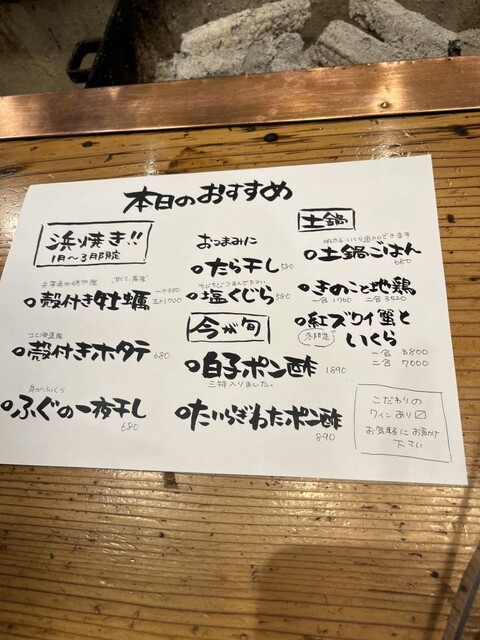 本日のおすすめ
浜焼き!!
1月〜3月限定
殻付き牡蠣 一ヶ380
五ヶ1700
北海道産
殻付きホタテ 680
身がふっくら
ふぐの一夜干し
680
おつまみに
たら干し 580
ちびちびつまんで下さい
塩くじら 580
今が旬
白子ポン酢 1890
三種入りました。
たいらぎわたポン酢
890
土鍋
土鍋ごはん
680
きのこと地鶏
一合 1760 二合 3520
紅ズワイ蟹と
いくら
一合 3800
二合 7000
こだわりの
ワインあり〼
お気軽にお声がけ
下さい